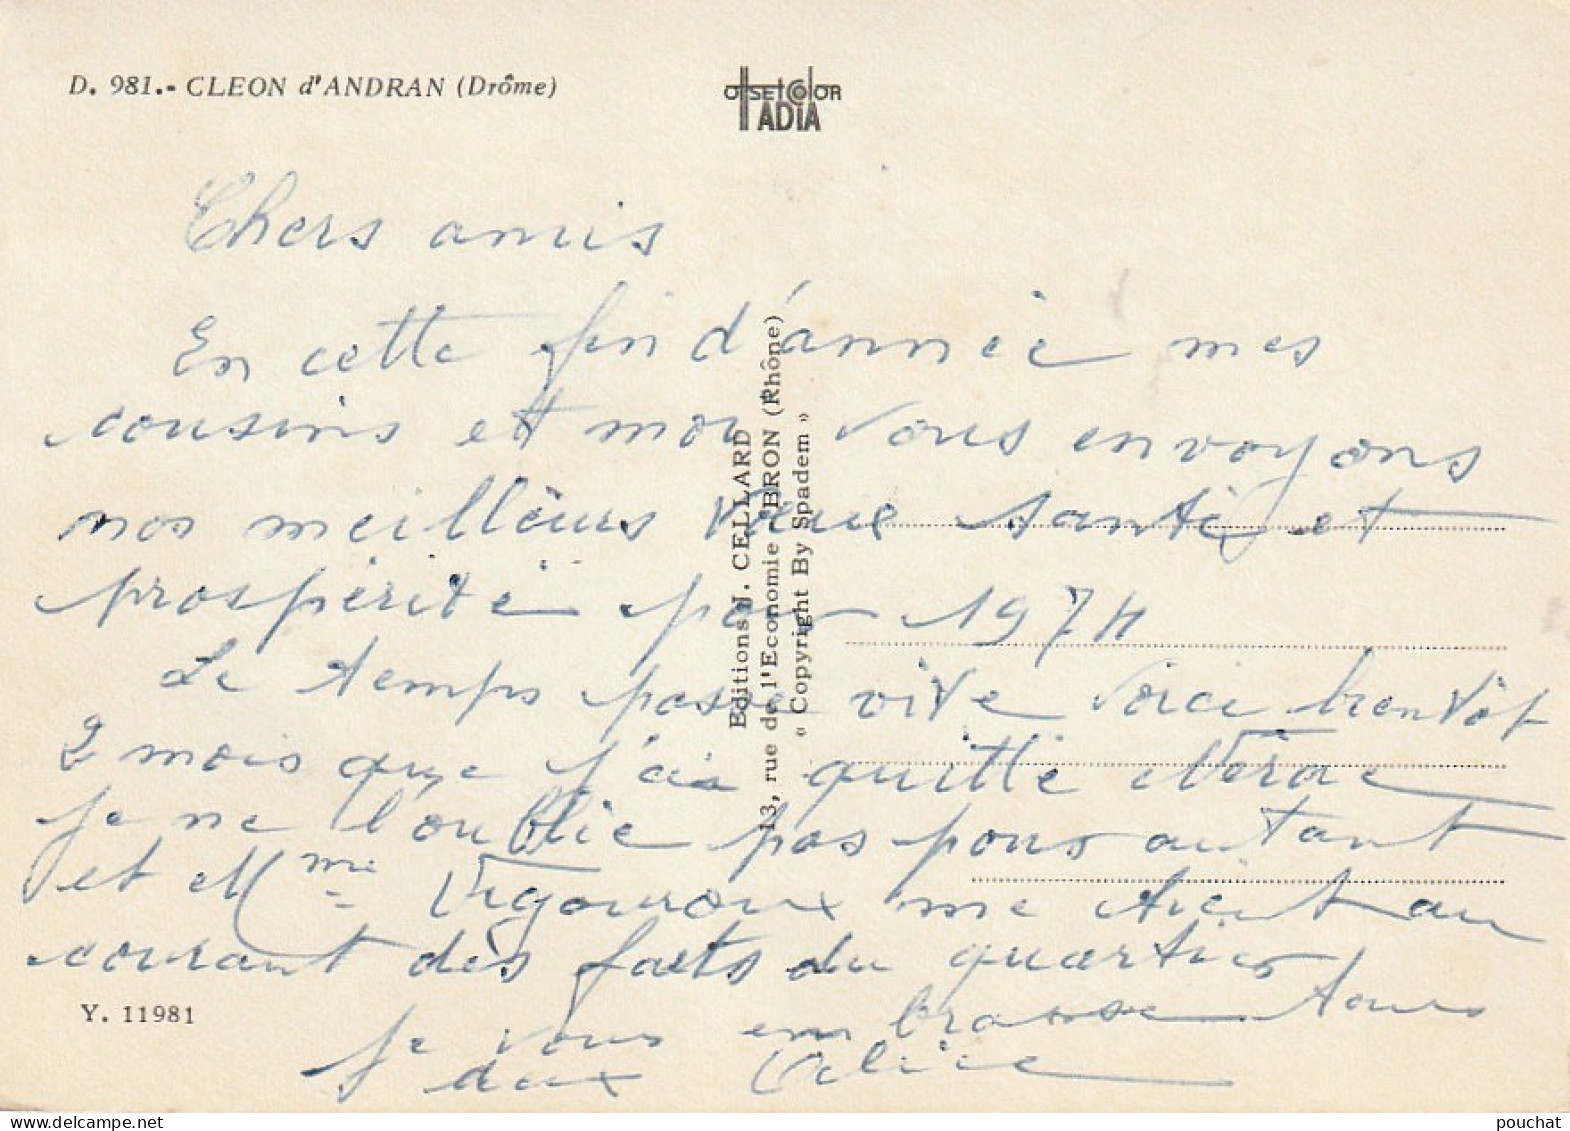 D. 981.- CLEON d'ANDRAN (Drôme)
OffsetColor
IADIA
Chers amis
En cette fin d'année mes
cousins et moi vous envoyons
nos meilleurs vœux santé et
prospérité pour 1974
Le temps passe vite voici bientôt
2 mois que j'ai quitté Nérac
je ne l'oublie pas pour autant
et Mme Vigouroux me tient au
courant des faits du quartier
je vous embrasse tous
deux
Editions J. CELLARD
13, rue de l'Economie BRON (Rhône)
« Copyright By Spadem »
Y. 11981
pouchat